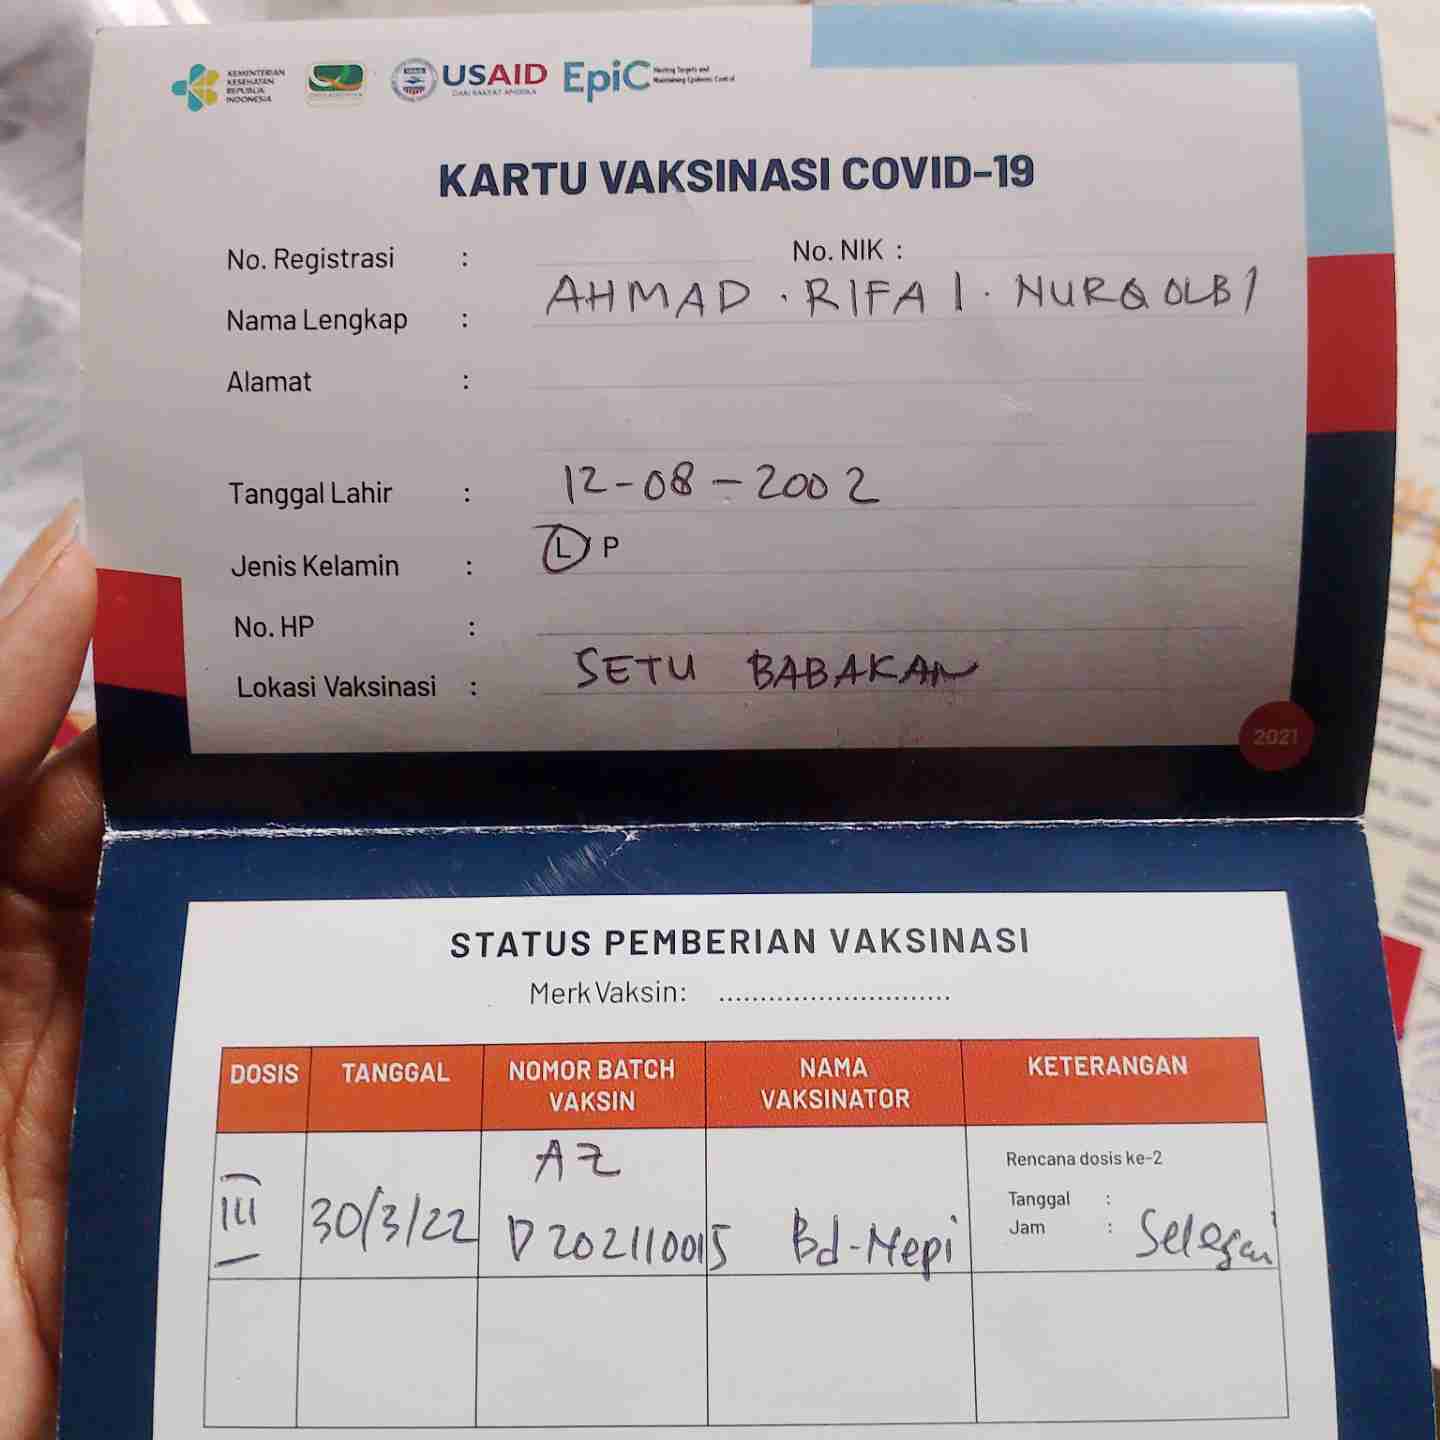 KEMENTERIAN
KESEHATAN
REPUBLIK
INDONESIA
USAID
DARI RAKYAT AMERIKA
EpiC Meeting Targets and
Maintaining Epidemic Control
KARTU VAKSINASI COVID-19
No. Registrasi : No. NIK :
Nama Lengkap : AHMAD . RIFA I . NURQOLBI
Alamat :
Tanggal Lahir : 12-08-2002
Jenis Kelamin : L P
No. HP :
Lokasi Vaksinasi : SETU BABAKAN
2021
STATUS PEMBERIAN VAKSINASI
Merk Vaksin: ............................
DOSIS TANGGAL NOMOR BATCH VAKSIN NAMA VAKSINATOR KETERANGAN
III 30/3/22 AZ D202110015 Bd-Mepi
Rencana dosis ke-2
Tanggal :
Jam : Selesai